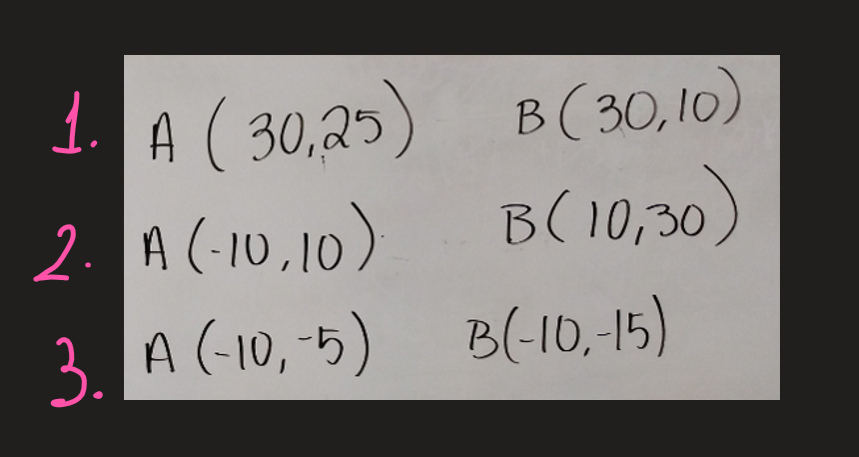 1. A (30,25) B (30,10)
2. A (-10,10) B (10,30)
3. A (-10,-5) B(-10,-15)